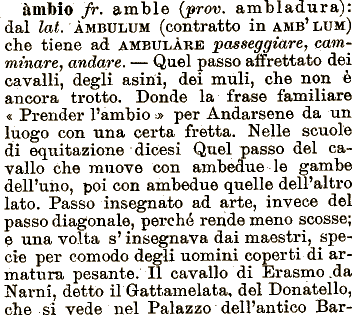 àmbio fr. amble (prov. ambladura):
dal lat. ÀMBULUM (contratto in AMB' LUM)
che tiene ad AMBULÀRE passeggiare, cam-
minare, andare. — Quel passo affrettato dei
cavalli, degli asini, dei muli, che non è
ancora trotto. Donde la frase familiare
« Prender l'ambio » per Andarsene da un
luogo con una certa fretta. Nelle scuole
di equitazione dicesi Quel passo del ca-
vallo che muove con ambedue le gambe
dell'uno, poi con ambedue quelle dell'altro
lato. Passo insegnato ad arte, invece del
passo diagonale, perché rende meno scosse;
e una volta s'insegnava dai maestri, spe-
cie per comodo degli uomini coperti di ar-
matura pesante. Il cavallo di Erasmo da
Narni, detto il Gattamelata, del Donatello,
che si vede nel Palazzo dell'antico Bar-